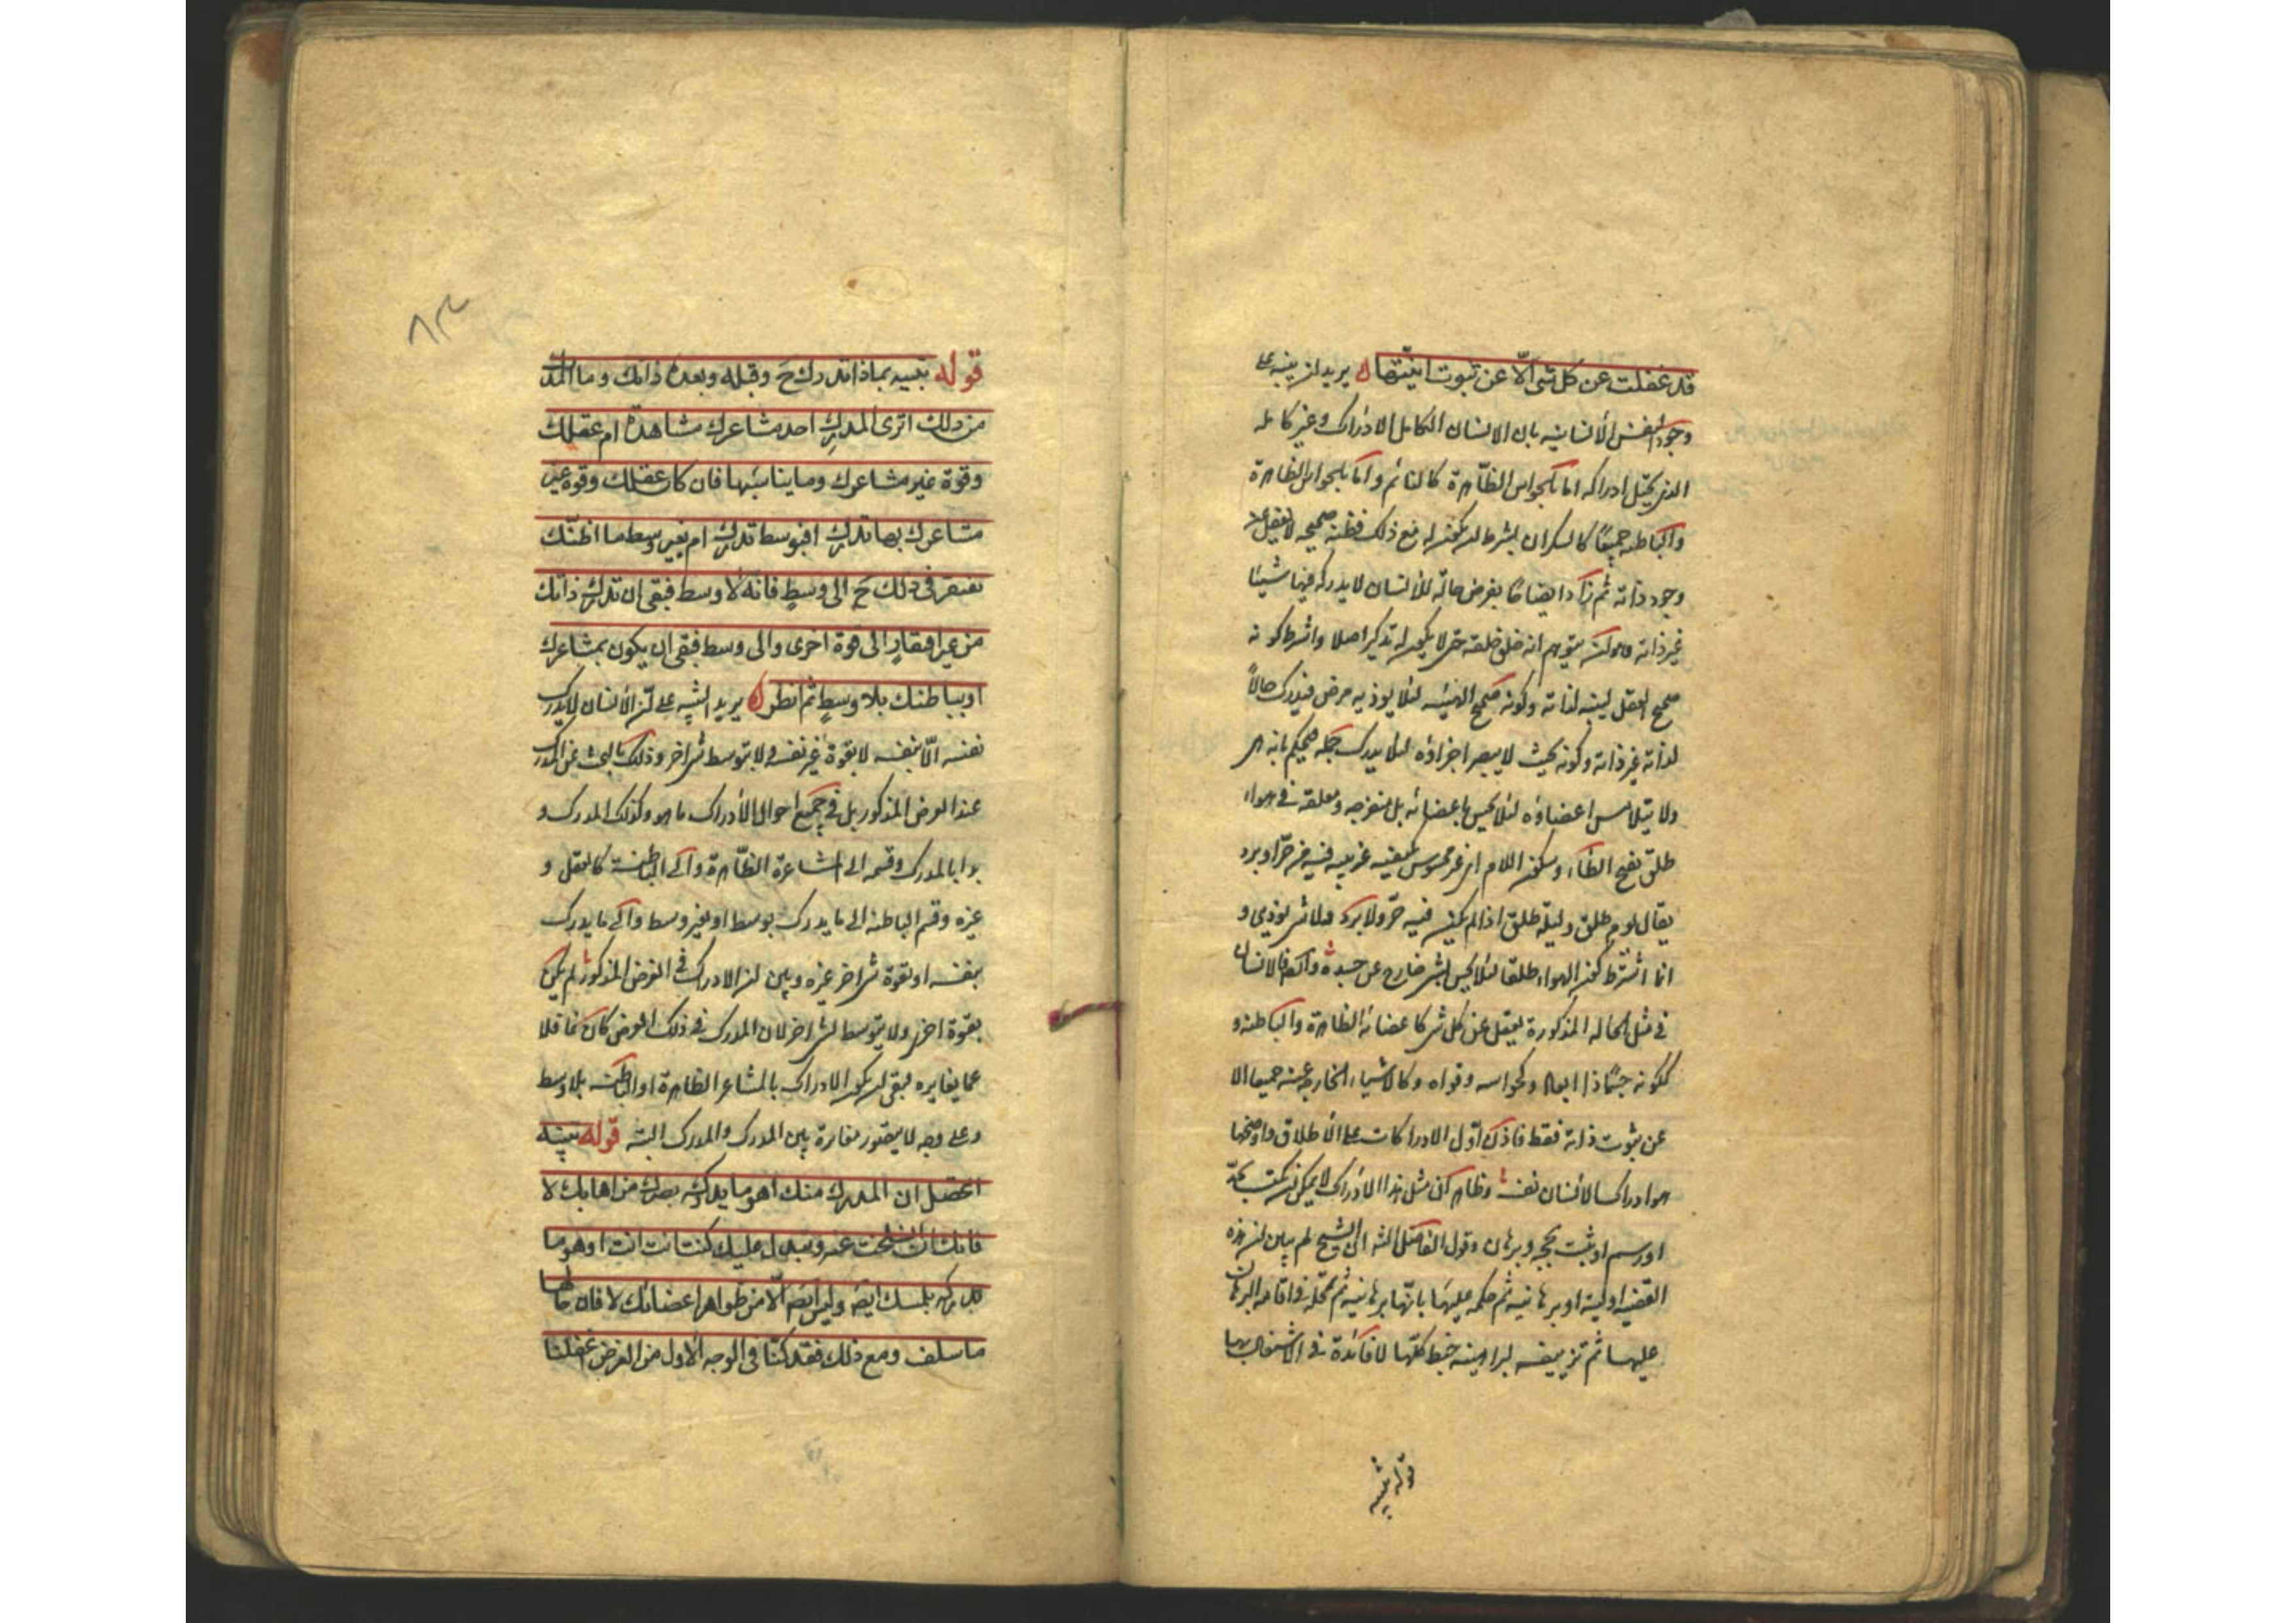 قد غفلت عن كل شئ الّا عن ثبوت انيّتها يريد ان ينبه على
وجود النفس الأنسانيه بان الانسان الكامل الادراك وغير كامله
الذى يختل ادراكه اما بالحواس الظّاهرة كالنائم واما بالحواس الظاهرة
والباطنه جميعًا كالسكران بشرط ان يكون له مع ذلك فطنه صحيحه لا يغفل عن
وجود ذاته ثم زاد ايضاحًا بفرض حالة للأنسان لا يدرك فيها شيئا
غير ذاته وهو ان يتوهم انه خلق خلقه حتى لا يكون له تذكر اصلا واشترط كونه
صحيح العقل ليتنبه لذاته وكونه صحيح الهيئه لئلا يوذيه مرض فيدرك حالاً
لذاته غير ذاته وكونه بحيث لا يبصر اجزاؤه لئلا يدرك جمله فيحكم بانه هى
ولا يتلامس اعضاؤه لئلا يحس باعضائه بل منفرجه ومعلقه فى هواء
طلق بفتح الطاء وسكون اللام اى غير محسوس بكيفيه غريبه فيه من حرّ او برد
يقال يوم طلق وليلة طلق اذا لم يكن فيه حرّ ولا برد ولا شئ يوذى و
انما اشترط كون الهواء طلقا لئلا يحس بشئ خارج عن جسده فالانسان
فى مثل الحاله المذكورة يغفل عن كل شئ كاعضائه الظاهرة والباطنه و
ككونه جسمًا ذا ابعاد وكحواسه وقواه وكالاشياء الخارجه عنه جميعا الا
عن ثبوت ذاته فقط فاذن اوّل الادراكات على الأطلاق واوضحها
هو ادراك الأنسان نفسه وظاهر ان مثل هذا الادراك لا يمكن ان يكتسب بحدّ
اورسم او يثبت بحجه وبرهان وقول الفاضل الشه ان الشيخ لم يبين ان هذه
القضيه اوليه او برهانيه ثم حكمه عليها بانّها برهانيه ثم تمحّله فى اقامه البرهان
عليها ثم تزييفه لبراهينه خبط كلّها لا فائدة فى الاشتغال بها
قوله تنبيه
قوله تنبيه بماذا تدرك ح وقبله وبعده ذاتك وما المدرك
من ذلك اترى المدرك احد مشاعرك مشاهدة ام عقلك
وقوة غير مشاعرك وما يناسبها فان كان عقلك وقوة غير
مشاعرك بها تدرك افبوسط تدرك ام بغير وسط ما اظنّك
تفتقر فى ذلك ح الى وسط فانّه لا وسط فبقى ان تدرك ذاتك
من غير افتقار الى قوة اخرى والى وسط فبقى ان يكون بمشاعرك
او بباطنك بلا وسطٍ ثم انظر يريد التنبيه على انّ الأنسان لا يدرك
نفسه الّا بنفسه لا بقوة غير نفسه ولا بتوسط شئ اخر وذلك بالبحث عن المدرك
عند الفرض المذكور بل فى جميع احوال الأدراك ما هو وكذلك المدرك و
بدا بالمدرك وقسمه الى المشاعرة الظّاهرة والى الباطنة كالعقل و
غيره وقسم الباطنه الى ما يدرك بوسط او بغير وسط والى ما يدرك
بنفسه او بقوة شئ اخر غيره وبين ان الادراك فى الفرض المذكور لم يكن
بقوة اخرى ولا بتوسط شئ اخر لان المدرك فى ذلك الفرض كان غافلا
عما يغايره فبقى ان يكون الادراك بالمشاعر الظاهرة او الباطنه بلا وسط
وعلى وجه لا يتصور مغايرة بين المدرك والمدرك البته قوله تنبيه
اتحصل ان المدرك منك اهو ما يدركه بصرك من اهابك لا
فانك ان انسلخت عنه وتبدل عليك كنت انت انت او هو ما
تدركه بلمسك ايضا وليس ايضا الّا من ظواهر اعضائك لا فان حالها
ما سلف ومع ذلك فقد كنّا فى الوجه الأول من الفرض اغفلنا